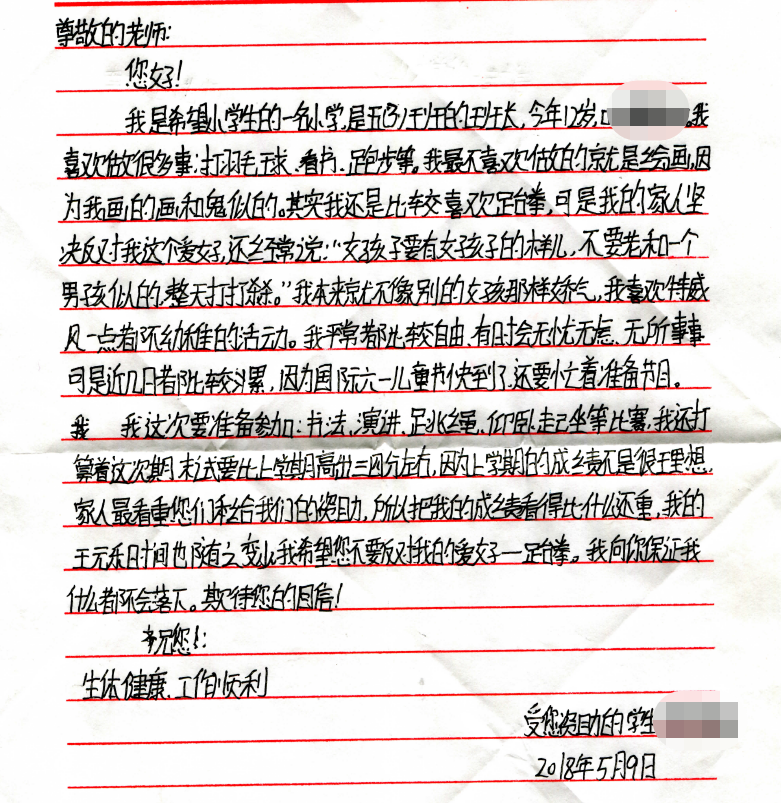 尊敬的老师:
您好!
我是希望小学生的一名小学,是五(3)班的班长,今年12岁 。我
喜欢做很多事:打羽毛球、看书、跑步等。我最不喜欢做的就是绘画,因
为我画的画和鬼似的。其实我还是比较喜欢跆拳,可是我的家人坚
决反对我这个爱好,还经常说:“女孩子要有女孩子的样儿,不要老和一个
男孩似的,整天打打杀杀。”我本来就不像别的女孩那样娇气,我喜欢特威
风一点都不幼稚的活动。我平常都比较自由,有时会无忧无虑、无所事事
可是近几日都比较累,因为国际六一儿童节快到了,还要忙着准备节目。
我 我这次要准备参加:书法、演讲、跳绳、仰卧起坐等比赛,我还打
算着这次期末试要比上学期高出三四分左右,因为上学期的成绩不是很理想,
家人最看重您们给我们的资助,所以把我的成绩看得比什么还重,我的
玩乐时间也随之变少,我希望您不要反对我的爱好—跆拳。我向你保证我
什么都不会落下。期待您的回信!
祝您!:
生体健康、工作顺利
受您资助的学生
2018年5月9日